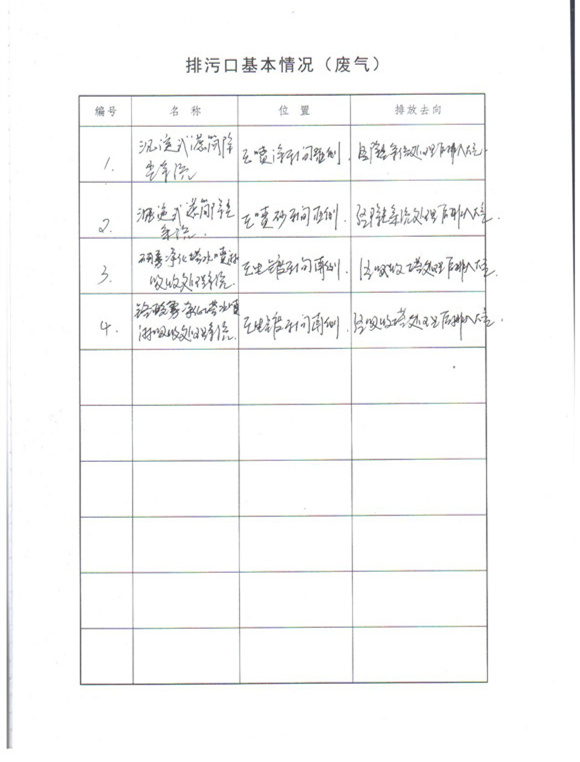 排污口基本情况（废气）
编号 名称 位置 排放去向
1. 沉流式滤筒除
尘系统 喷漆车间 侧 经除尘系统处理后排入大气.
2. 沉流式滤筒除尘
系统. 喷砂车间 侧. 经除尘系统处理后排入大气
3. 净化塔水喷淋
吸收处理系统. 电镀车间南侧. 经吸收塔处理后排入大气.
4. 铬酸雾净化塔水喷
淋吸收处理系统. 电镀车间南侧 经吸收塔处理后排入大气.